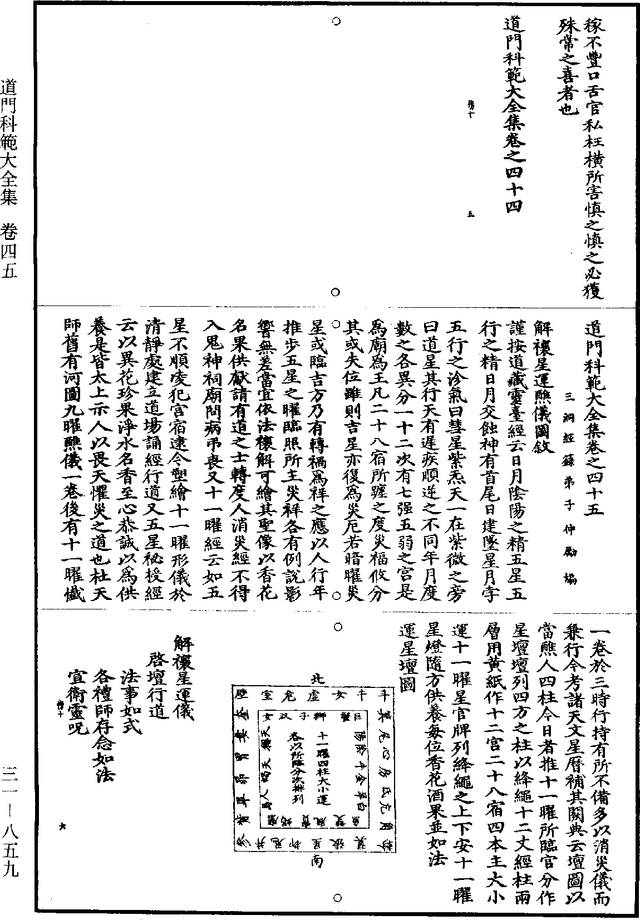 道門科範大全集 卷四五
三一—八五九
稼不豐口舌官私枉橫所害慎之慎之必獲
殊常之喜者也
道門科範大全集卷之四十四
五
道門科範大全集卷之四十五
三洞經籙弟子仲勵編
解禳星運醮儀圖敘
謹按道藏靈臺經云日月陰陽之精五星五
行之精日月交蝕神有首尾日建墜星月孛
五行之沴氣曰彗星紫炁天一在紫微之旁
曰道星其行天有遲疾順逆之不同年月度
數之各異分一十二次有七強五弱之宮是
為廟為王凡二十八宿所躔之度災福攸分
其或失位雖則吉星亦復為災厄若暗曜災
星或臨吉方乃有轉禍為祥之應以人行年
推步五星之曜臨照所主災祥各有例說影
響無差當宜依法禳解可繪其聖像以香花
名果供獻請有道之士轉度人消災經不得
入鬼神祠廟問病弔喪又十一曜經云如五
星不順凌犯宮宿速令塑繪十一曜形儀於
清靜處建立道場誦經行道又五星秘授經
云以異花珍果淨水名香至心恭誠以為供
養是皆太上示人以畏天懼災之道也杜天
師舊有河圖九曜醮儀一卷後有十一曜懺
一卷於三時行持有所不備多以消災儀而
兼行今考諸天文星曆補其闕典云壇圖以
當醮人四柱今日者推十一曜所臨官分作
星壇壇列四方之柱以絳繩十二丈經柱兩
層用黃紙作十二宮二十八宿四本主大小
運十一曜星官牌列絳繩之上下安十一曜
星燈隨方供養每位香花酒果並如法
運星壇圖
北
斗牛女虛危室壁
十一曜四柱大小運
各以所臨分次排列
南
解禳星運儀
啓壇行道
法事如式
各禮師存念如法
宣衛靈呪
六